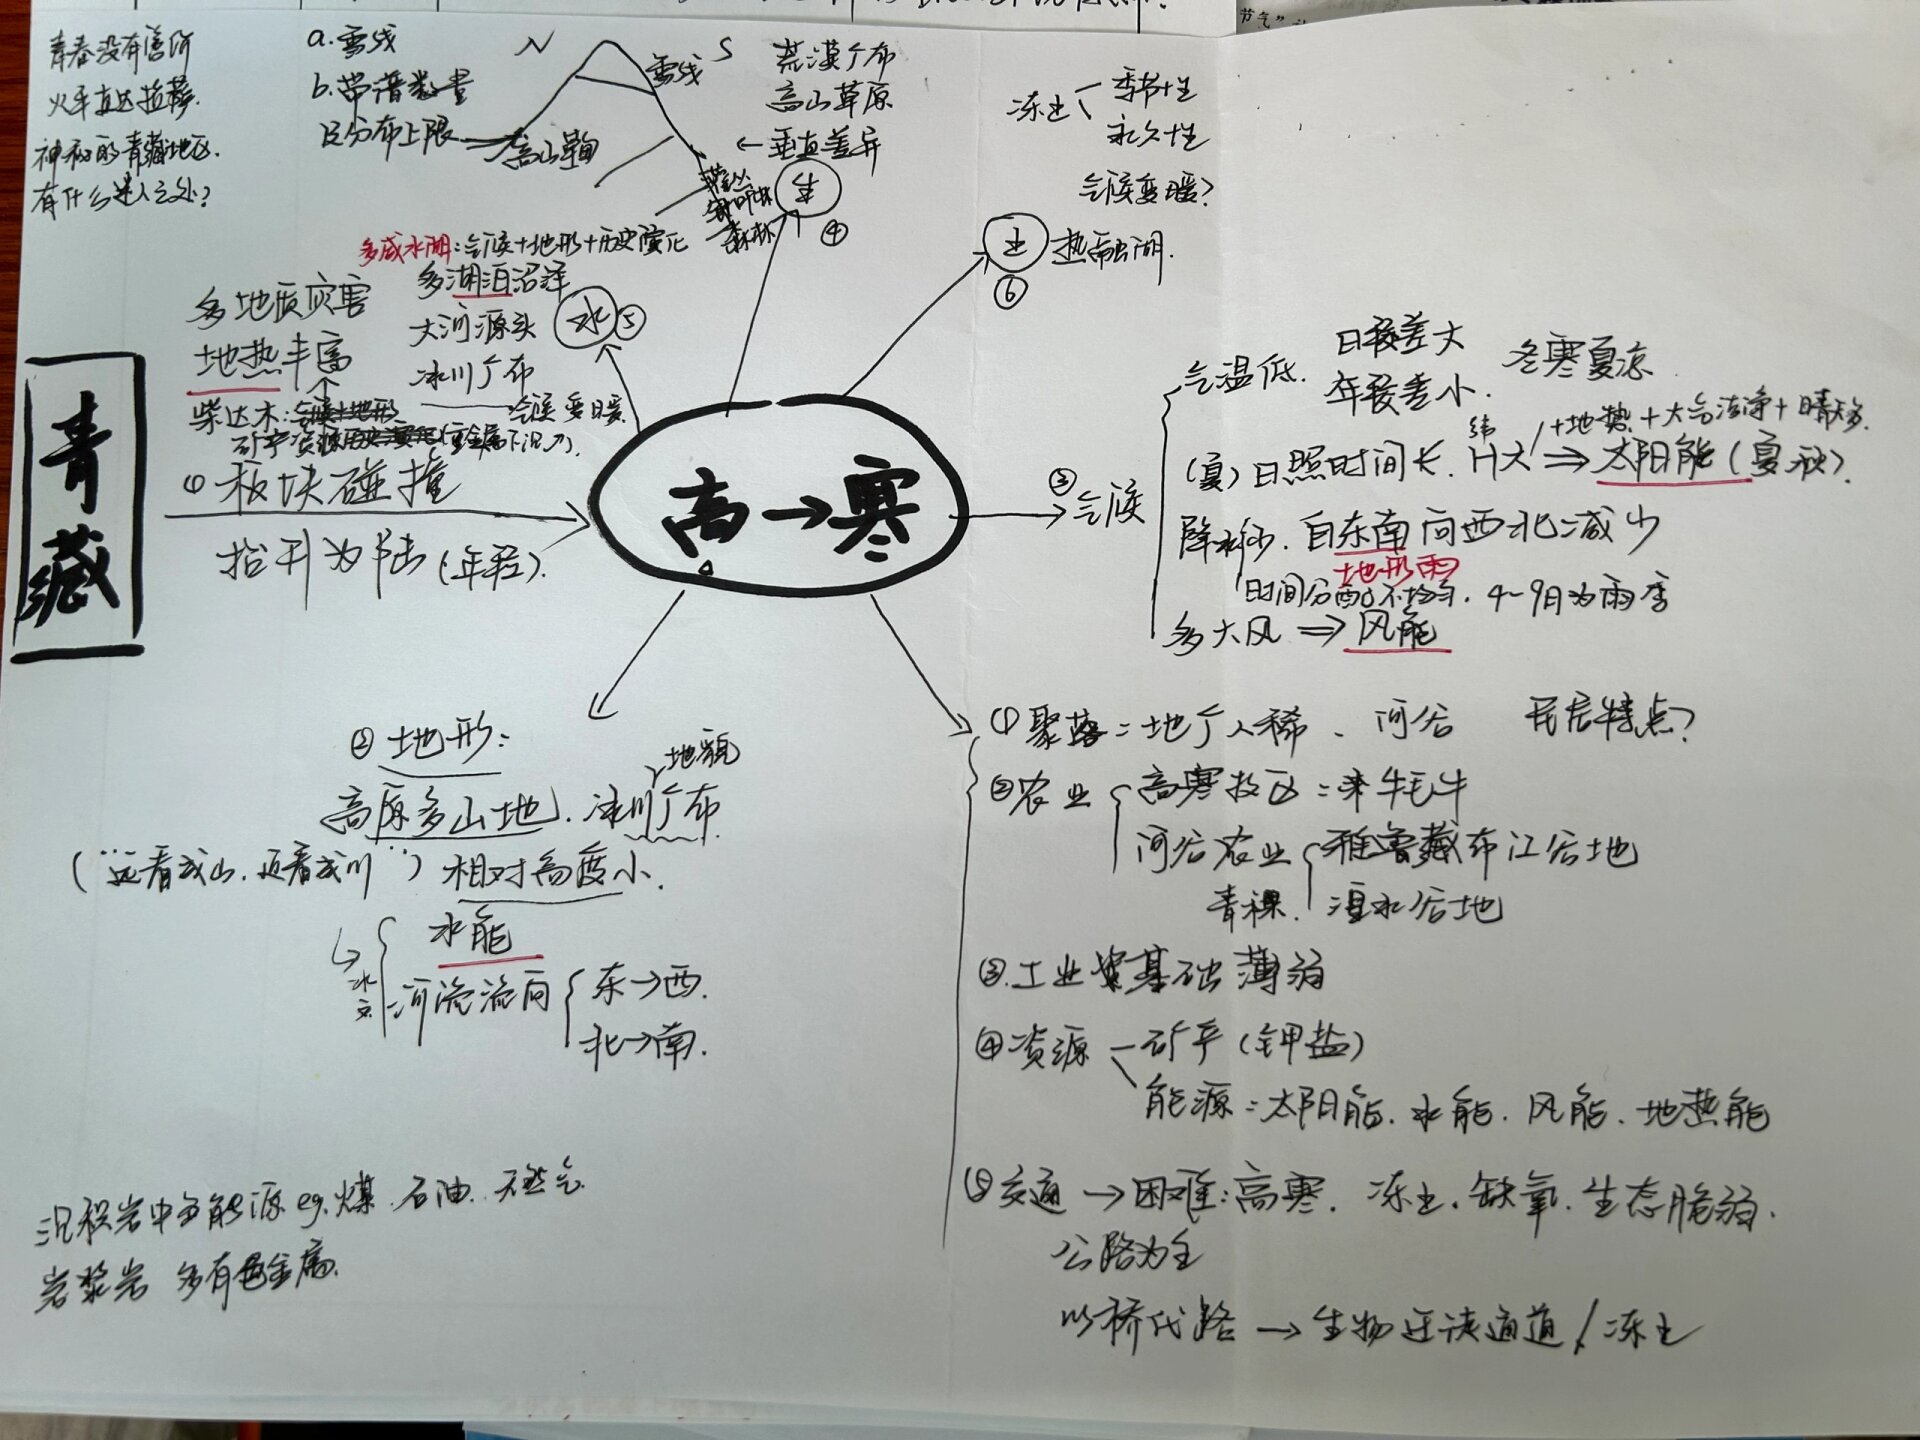 节气”
青春没有售价
火车直达拉萨.
神秘的青藏地区.
有什么迷人之处?
a.雪线
b.带谱数量
区分布上限
高山草甸
N
S
雪线
荒漠广布
高山草原
← 垂直差异
灌丛
针叶林
森林
生
④
冻土
季节性
永久性
气候变暖?
土
热融湖.
⑥
多咸水湖:气候+地形+历史演化
多湖泊沼泽
大河源头
冰川广布
气候变暖.
水
⑤
多地质灾害
地热丰富
柴达木:
矿产资源
(重金属下沉).
青藏
① 板块碰撞
抬升为陆(年轻).
高→寒
③
气候
气温低.
日较差大
年较差小.
冬寒夏凉
(夏)日照时间长.
纬
H大 ⇒ 太阳能(夏秋).
+地势+大气洁净+晴天多.
降水少.自东南向西北减少
地形雨
时间分配不均匀. 4~9月为雨季
多大风 ⇒ 风能
② 地形:
地貌
高原多山地.冰川广布
(“远看成山,近看成川”)相对高度小.
水文.
水能
河流流向
东→西.
北→南.
①聚落:地广人稀、河谷 民居特点?
②农业
高寒牧区:牦牛
河谷农业
雅鲁藏布江谷地
青稞.
湟水谷地
③.工业基础薄弱
④资源
矿产(钾盐)
能源:太阳能.水能.风能.地热能
⑤交通→困难:高寒.冻土.缺氧.生态脆弱.
公路为主
以桥代路→生物迁徙通道/冻土
沉积岩中多能源 eg.煤.石油.天然气.
岩浆岩 多有色金属.